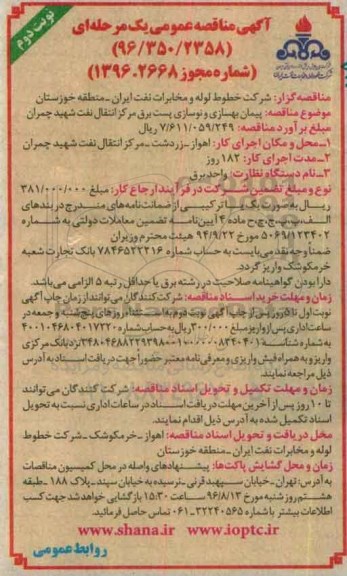 نوبت دوم
آگهی مناقصه عمومی یک مرحله‌ای
(۹۶/۳۵۰/۲۳۵۸)
(شماره مجوز ۱۳۹۶.۲۶۶۸)
مناقصه گزار: شرکت خطوط لوله و مخابرات نفت ایران ـ منطقه خوزستان
موضوع مناقصه: پیمان بهسازی و نوسازی پست برق مرکز انتقال نفت شهید چمران
مبلغ برآورد مناقصه: ۷/۶۱۱/۰۵۹/۲۴۹ ریال
۱ـ محل و مکان اجرای کار: اهواز ـ زردشت ـ مرکز انتقال نفت شهید چمران
۲ـ مدت اجرای کار: ۱۸۲ روز
۳ـ نام دستگاه نظارت: واحد برق
نوع و مبلغ تضمین شرکت در فرآیند ارجاع کار: مبلغ ۳۸۱/۰۰۰/۰۰۰
ریال به صورت یک یا ترکیبی از ضمانت نامه‌های مندرج در بندهای
الف، ب، پ، ج، چ، ح ماده ۴ آیین‌نامه تضمین معاملات دولتی به شماره
۵۰۶۹/۱۲۳۴۰۲ مورخ ۹۴/۹/۲۲ هیئت محترم وزیران
ضمناً وجه نقد می‌بایست به حساب شماره ۷۸۴۶۵۲۲۳۱۶ بانک تجارت شعبه
خرمکوشک واریز گردد.
دارا بودن گواهینامه صلاحیت در رشته برق با حداقل رتبه ۵ الزامی می‌باشد.
زمان و مهلت خرید اسناد مناقصه: شرکت کنندگان می‌توانند از زمان چاپ آگهی
نوبت اول تا ۵ روز پس از چاپ آگهی نوبت دوم به استثناء روزهای پنج‌شنبه و جمعه در
ساعات اداری پس از واریز مبلغ ۳۰۰/۰۰۰ ریال به حساب شماره ۴۰۰۱۰۴۶۸۰۴۰۱۷۲۲۰
به شماره شناسه نزد بانک مرکزی
واریز و به همراه فیش واریزی و معرفی نامه معتبر حضور آجهت دریافت اسناد به آدرس
ذیل مراجعه نمایند.
زمان و مهلت تکمیل و تحویل اسناد مناقصه: شرکت کنندگان می‌توانند
تا ۱۰ روز پس از آخرین مهلت دریافت اسناد در ساعات اداری نسبت به تحویل
اسناد تکمیل شده به آدرس ذیل اقدام نمایند.
محل دریافت و تحویل اسناد مناقصه: اهواز ـ خرمکوشک ـ شرکت خطوط
لوله و مخابرات نفت ایران ـ منطقه خوزستان
زمان و محل گشایش پاکت‌ها: پیشنهادهای واصله در محل کمیسیون مناقصات
به آدرس: تهران ـ خیابان سپهبد قرنی ـ نرسیده به خیابان سپند ـ پلاک ۱۸۸ ـ طبقه
هشتم روز شنبه مورخ ۹۶/۸/۱۳ ساعت ۱۵:۳۰ بازگشایی خواهد شد جهت کسب
اطلاعات بیشتر با شماره ۳۲۲۴۰۵۶۵ـ۰۶۱ تماس حاصل فرمائید.
www.shana.ir www.ioptc.ir
روابط عمومی